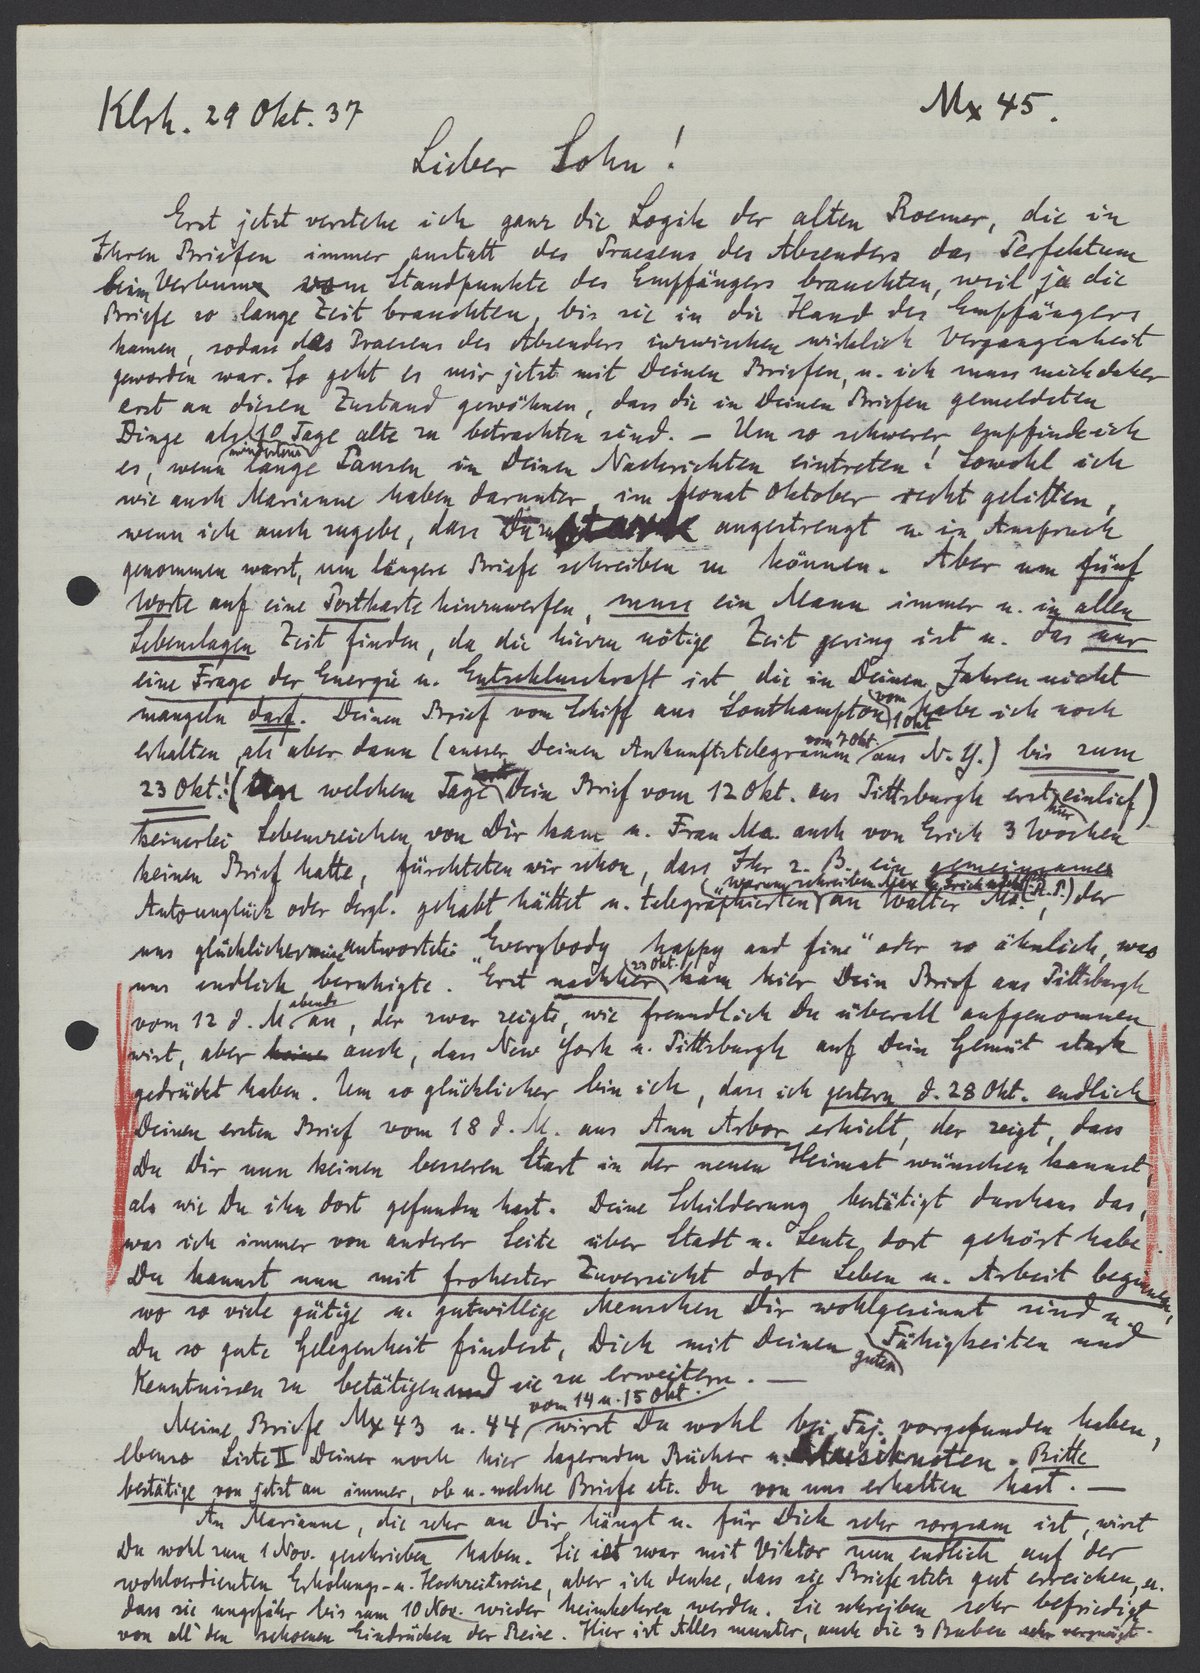 Klrh. 29 Okt. 37
Mx 45.
Lieber Sohn!
Erst jetzt verstehe ich ganz die Logik der alten Roemer, die in
Ihren Briefen immer anstatt des Praesens des Absenders das Perfektum
beim Verbum vom Standpunkte des Empfängers brauchten, weil ja die
Briefe so lange Zeit brauchten, bis sie in die Hand des Empfängers
kamen, sodass das Praesens des Absenders inzwischen wirklich Vergangenheit
geworden war. So geht es mir jetzt mit Deinen Briefen, u. ich muss mich daher
erst an diesen Zustand gewöhnen, dass die in Deinen Briefen gemeldeten
Dinge als 10 Tage alte zu betrachten sind. – Um so schwerer empfinde ich
mindestens
es, wenn lange Pausen in Deinen Nachrichten eintreten! Sowohl ich
wie auch Marianne haben darunter im Monat Oktober recht gelitten,
wenn ich auch zugebe, dass Du stark angestrengt u. in Anspruch
genommen warst, um längere Briefe schreiben zu können. Aber um fünf
Worte auf eine Postkarte hinzuwerfen, muss ein Mann immer u. in allen
Lebenslagen Zeit finden, da die hierzu nötige Zeit gering ist u. das nur
eine Frage der Energie u. Entschlusskraft ist, die in Deinen Jahren nicht
mangeln darf. Deinen Brief vom Schiff aus Southampton vom 1 Okt habe ich noch
erhalten, als aber dann (ausser Deinen Ankunftstelegramm vom 7 Okt. aus N. Y.) bis zum
23 Okt.! (an welchem Tage Dein Brief vom 12 Okt. aus Pittsburgh erst hier einlief)
keinerlei Lebenszeichen von Dir kam u. Frau Ma. auch von Erich 3 Wochen
keinen Brief hatte, fürchteten wir schon, dass Ihr z. B. ein gemeinsames
("warum schreiben Max u. Erich nicht" R.P.)
Autounglück oder dergl. gehabt hättet u. telegraphierten an Walter Ma., der
uns glücklicherweise antwortete: „Everybody happy and fine" oder so ähnlich, was
uns endlich beruhigte. Erst nachher 23 Okt. kam hier Dein Brief aus Pittsburgh
vom 12 d. M. abends an, der zwar zeigte, wie freundlich Du überall aufgenommen
wirst, aber keine auch, dass New York u. Pittsburgh auf Dein Gemüt stark
gedrückt haben. Um so glücklicher bin ich, dass ich gestern d. 28 Okt. endlich
Deinen ersten Brief vom 18 d. M. aus Ann Arbor erhielt, der zeigt, dass
Du Dir nun keinen besseren Start in der neuen Heimat wünschen kannst,
als wie Du ihn dort gefunden hast. Deine Schilderung bestätigt durchaus das,
was ich immer von anderer Seite über Stadt u. Leute dort gehört habe.
Du kannst nun mit frohester Zuversicht dort Leben u. Arbeit beginnen,
wo so viele gütige u. gutwillige Menschen Dir wohlgesinnt sind u.
Du so gute Gelegenheit findest, Dich mit Deinen guten Fähigkeiten und
Kenntnissen zu betätigen und sie zu erweitern. –
Meine Briefe Mx 43 u. 44 vom 14 u. 15 Okt. wirst Du wohl bei Faj. vorgefunden haben,
ebenso Liste II Deiner noch hier lagernden Bücher u. Musiknoten. Bitte
bestätige von jetzt an immer, ob u. welche Briefe etc. Du von uns erhalten hast. –
An Marianne, die sehr an Dir hängt u. für Dich sehr sorgsam ist, wirst
Du wohl zum 1 Nov. geschrieben haben. Sie ist zwar mit Viktor nun endlich auf der
wohlverdienten Erholungs- u. Hochzeitsreise, aber ich denke, dass sie Briefe stets gut erreichen, u.
dass sie ungefähr bis zum 10 Nov. wieder heimkehren werden. Sie schreiben sehr befriedigt
von all den schoenen Eindrücken der Reise. Hier ist Alles munter, auch die 3 Buben sehr vergnügt.